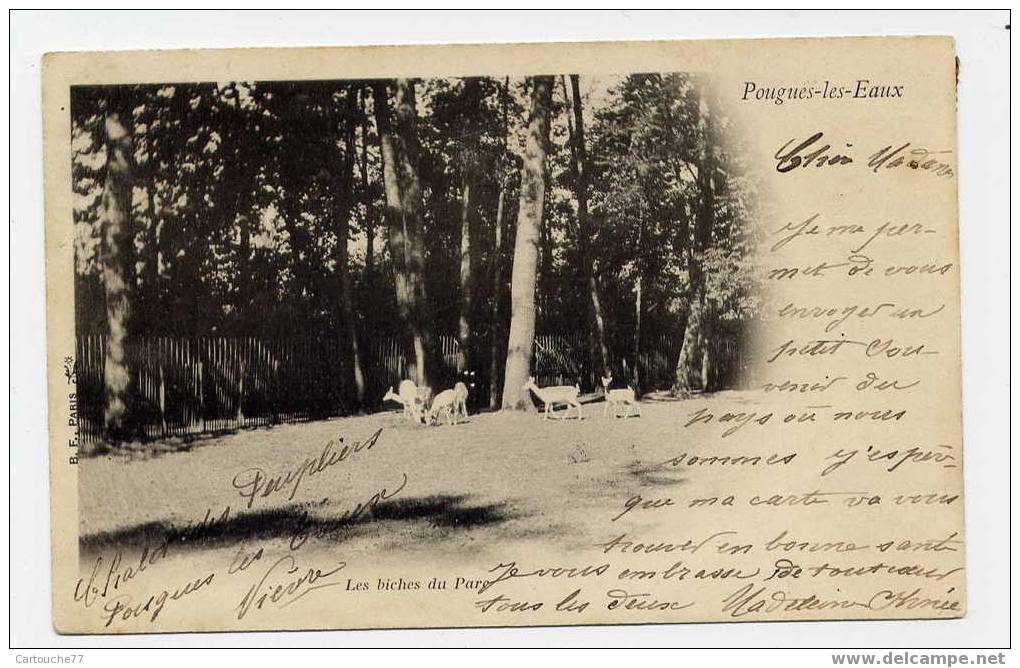 Pougues-les-Eaux
Chère Madame
Je me per-
met de vous
envoyer un
petit sou-
venir du
pays où nous
sommes j'espèr-
que ma carte va vous
trouver en bonne santé
Je vous embrasse de tout cœur
tous les deux Madeleine
Chalet des Peupliers
Pougues les Eaux
Nièvre
Les biches du Parc
B. F., PARIS
Cartouche77
www.delcampe.net